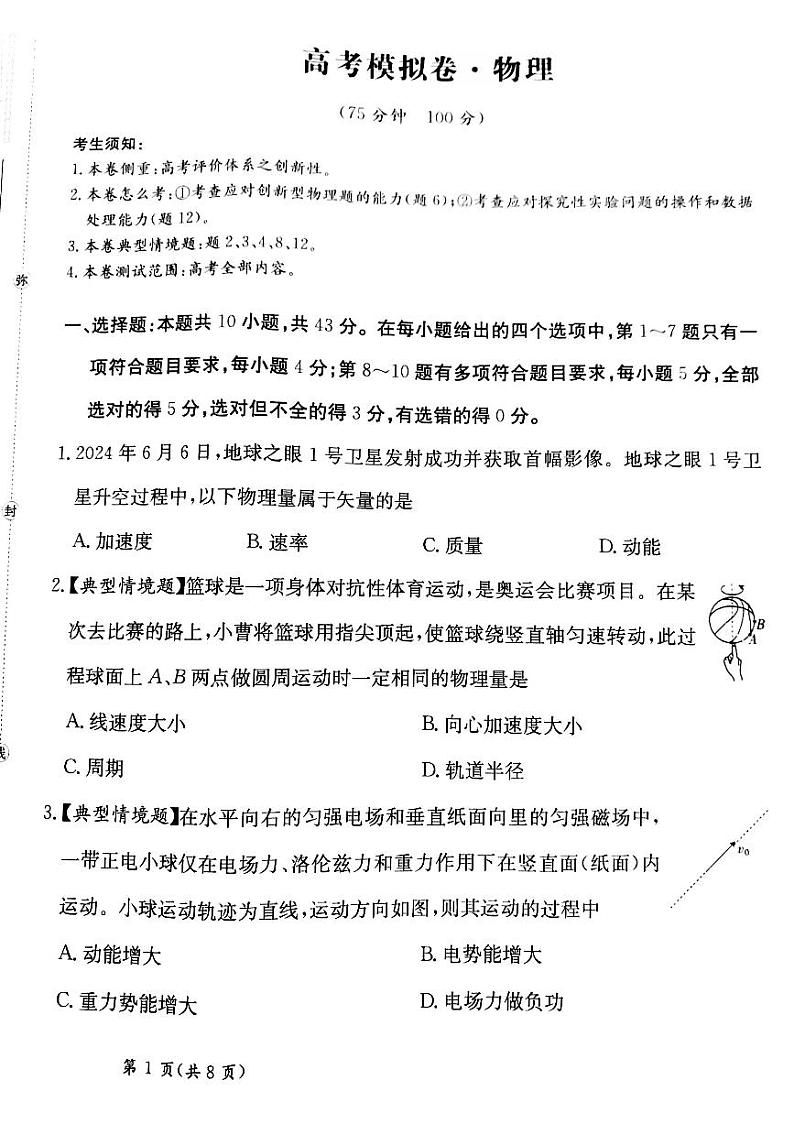 高考模拟卷·物理
(75分钟 100分)
考生须知:
1.本卷侧重:高考评价体系之创新性。
2.本卷怎么考:①考查应对创新型物理题的能力(题6);②考查应对探究性实验问题的操作和数据
处理能力(题12)。
3.本卷典型情境题:题2、3、4、8、12。
4.本卷测试范围:高考全部内容。
弥
一、选择题:本题共10小题,共43分。在每小题给出的四个选项中,第1～7题只有一
项符合题目要求,每小题4分;第8～10题有多项符合题目要求,每小题5分,全部
选对的得5分,选对但不全的得3分,有选错的得0分。
1.2024年6月6日,地球之眼1号卫星发射成功并获取首幅影像。地球之眼1号卫
星升空过程中,以下物理量属于矢量的是
封
A.加速度 B.速率 C.质量 D.动能
2.【典型情境题】篮球是一项身体对抗性体育运动,是奥运会比赛项目。在某
次去比赛的路上,小曹将篮球用指尖顶起,使篮球绕竖直轴匀速转动,此过
程球面上A、B两点做圆周运动时一定相同的物理量是
B
A
A.线速度大小 B.向心加速度大小
线
C.周期 D.轨道半径
3.【典型情境题】在水平向右的匀强电场和垂直纸面向里的匀强磁场中,
一带正电小球仅在电场力、洛伦兹力和重力作用下在竖直面(纸面)内
运动。小球运动轨迹为直线,运动方向如图,则其运动的过程中
v₀
A.动能增大 B.电势能增大
C.重力势能增大 D.电场力做负功
第1页(共8页)